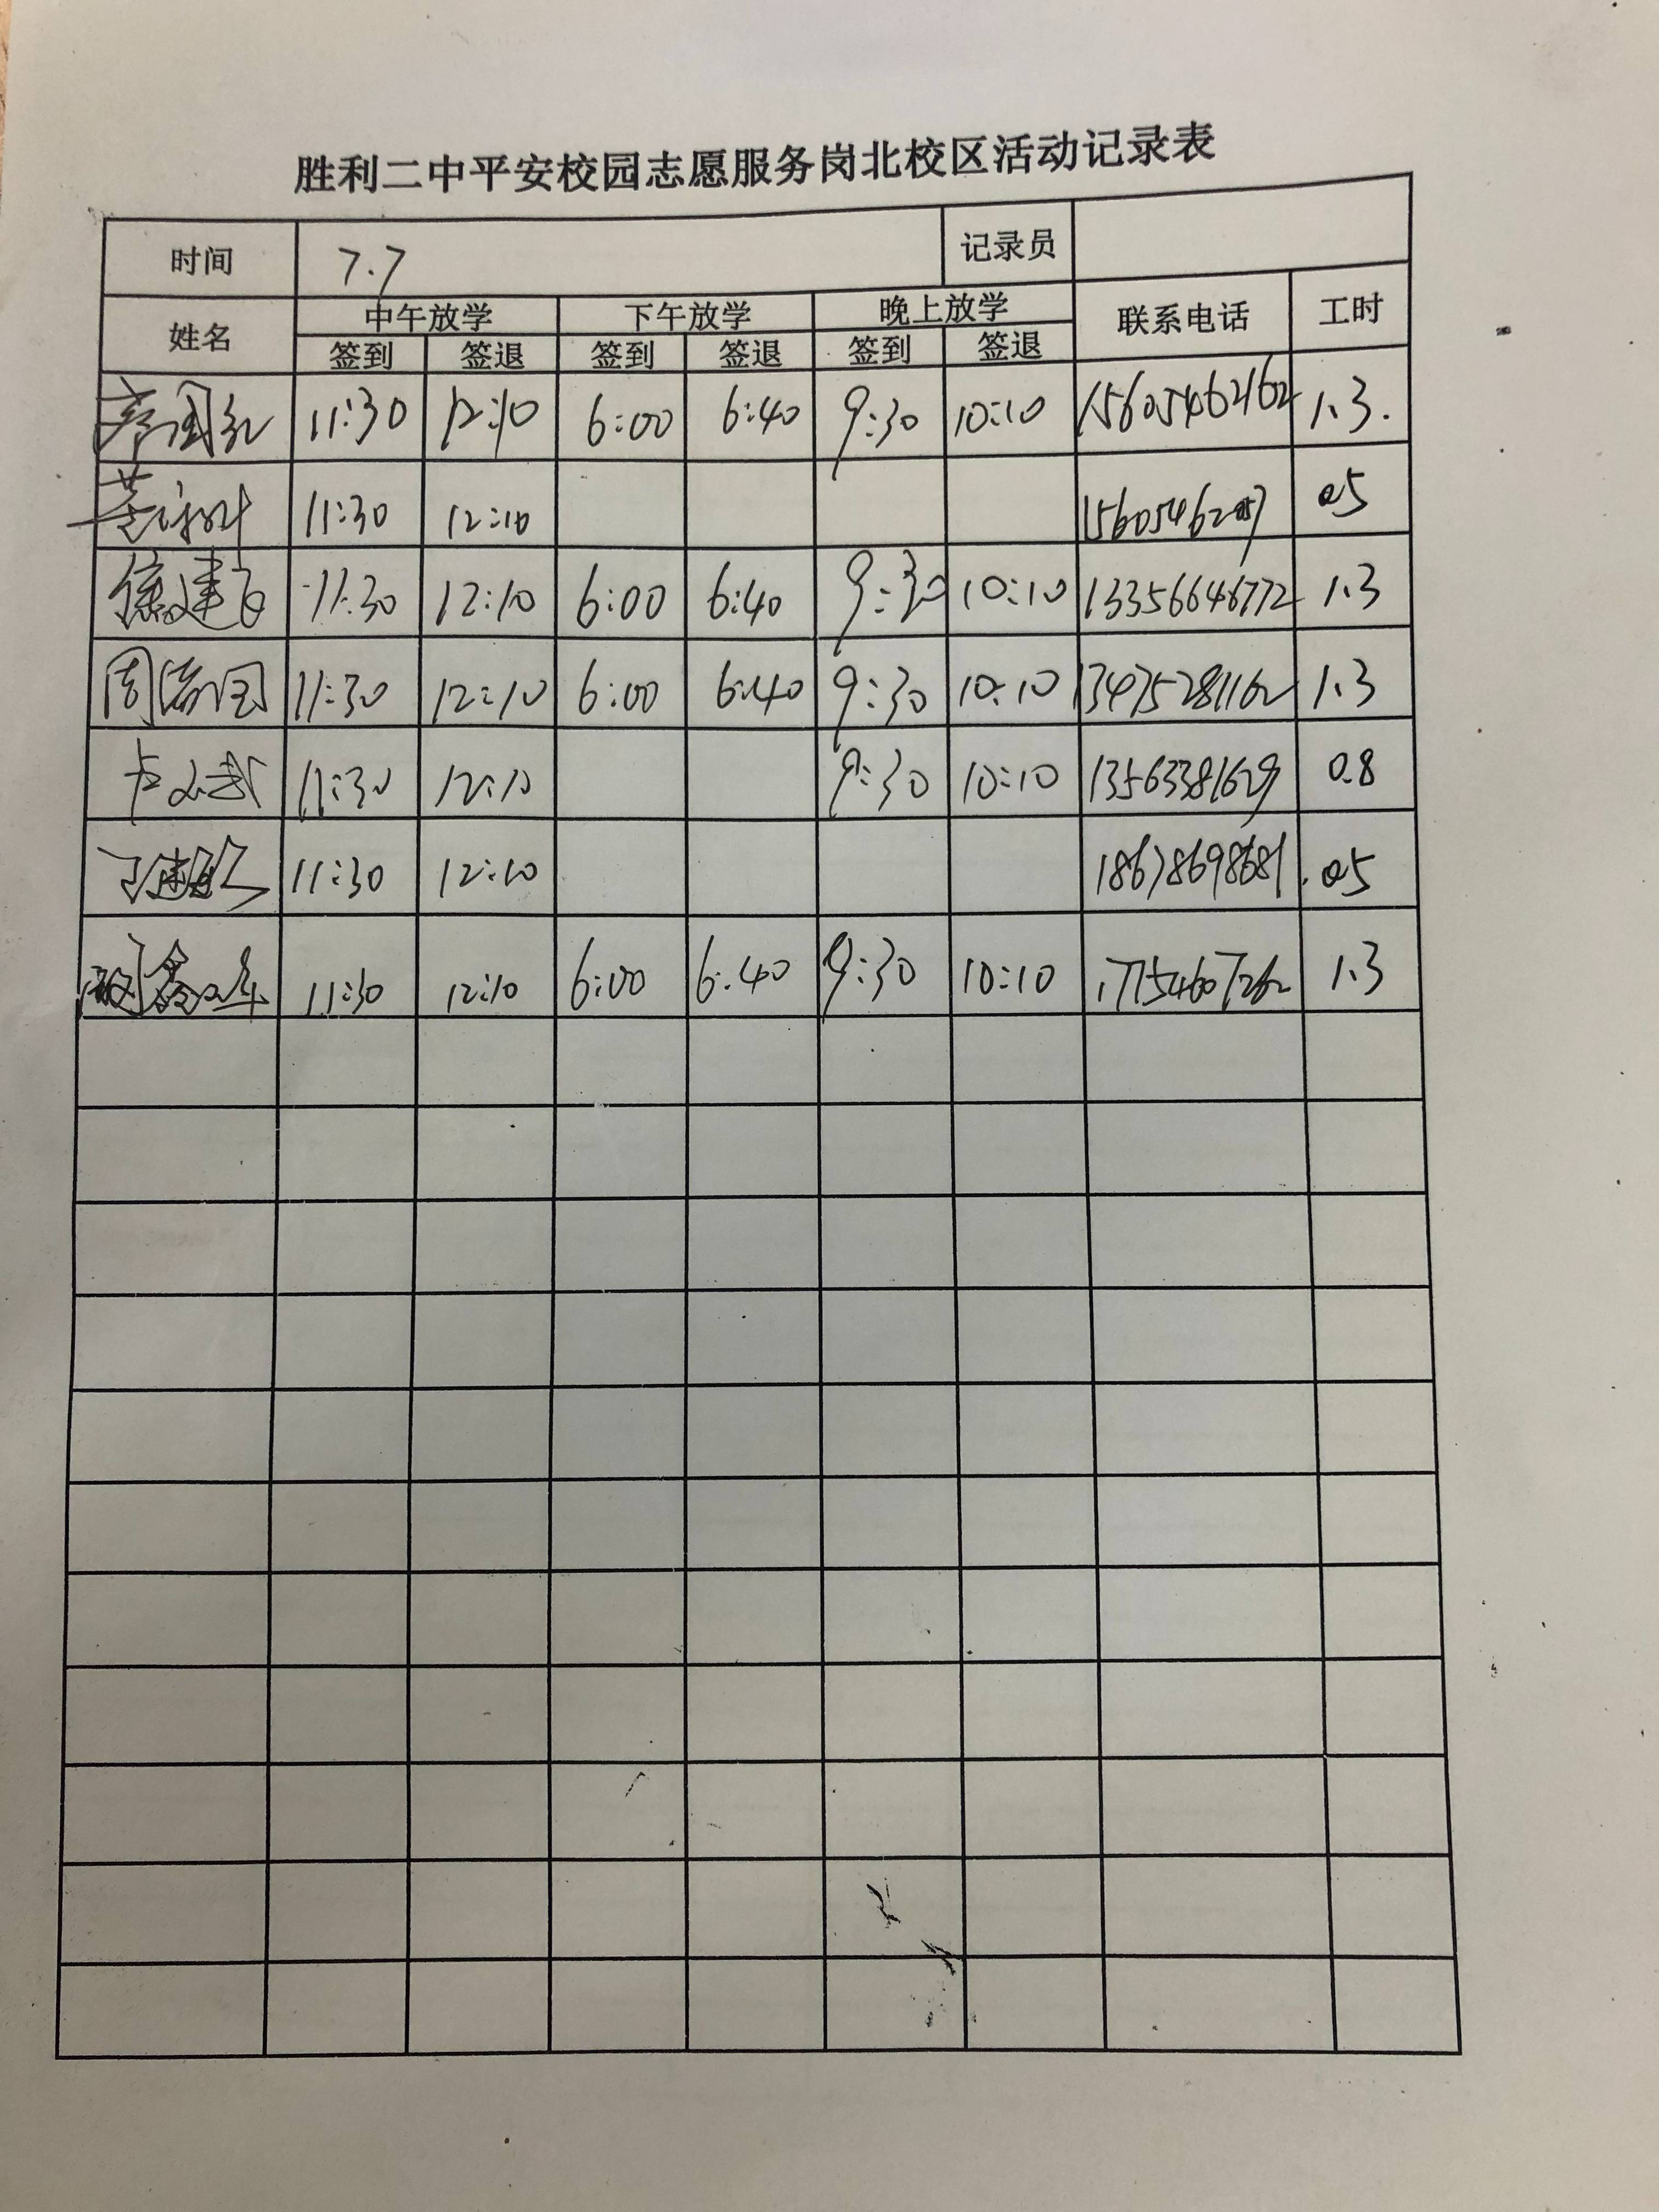 胜利二中平安校园志愿服务岗北校区活动记录表
时间 7.7 记录员
姓名 中午放学 下午放学 晚上放学 联系电话 工时
签到 签退 签到 签退 签到 签退
11:30 12:10 6:00 6:40 9:30 10:10 15605462162 1.3.
11:30 12:10 05
徐建飞 11:30 12:10 6:00 6:40 9:30 10:10 13356646772 1.3
11:30 12:10 6:00 6:40 9:30 10:10 13475281162 1.3
11:30 12:10 9:30 10:10 13563381629 0.8
11:30 12:10 18678698681 05
11:30 12:10 6:00 6:40 9:30 10:10 177154607262 1.3